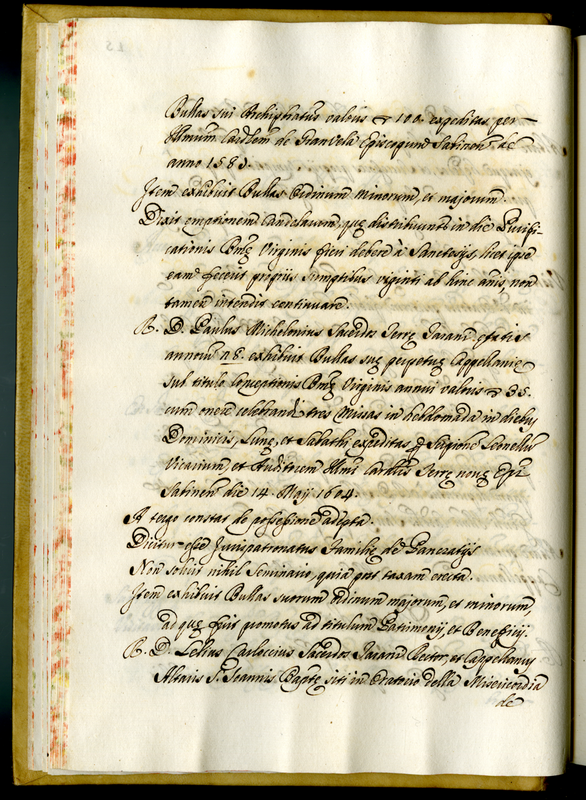 Bullas sui Archiphatus valoris ▽ 100. expeditas per
Illmum Cardlem de Granvela Episcopum Sabinen de
anno 1583.
Item exhibuit Bullas Ordinum minorum, et majorum.
Dixit emptionem Candelarum, quę distribuunt in die Purifi-
cationis Bmę Virginis fieri debere à Sanctesijs, licet ipse
eam fecerit proprijs sumptibus viginti ab hinc annis, non
tamen intendit continuare.
R. D. Paulus Michelonius Sacerdos Terrę Tarani ętatis
annorum 28. exhibuit Bullas suę perpetuę Cappellanię
sub titulo Conceptionis Bmę Virginis annui valoris ▽ 35.
cum onere celebrandi tres Missas in hebdomada in diebus
Dominicis, Lunę, et Sabathi expeditas p Leonellum
Vicarium, et Auditorem Illmi Cardlis Terrę novę Epi
Sabinen die 14. Maij 1604.
A tergo constat de possessione adepta.
Dicitur esse Jurispatronatus Familię de Pancratijs
Non solvit nihil Seminario, quia post taxam erecta.
Item exhibuit Bullas suorum Ordinum majorum, et minorum,
ad quę fuit promotus ad titulum Patrimonij, et Beneficij.
R. D. Lelius Carloccius Sacerdos Taranen Rector, et Cappellanus
Altaris S. Joannis Baptę siti in Oratorio della Misericordia
de